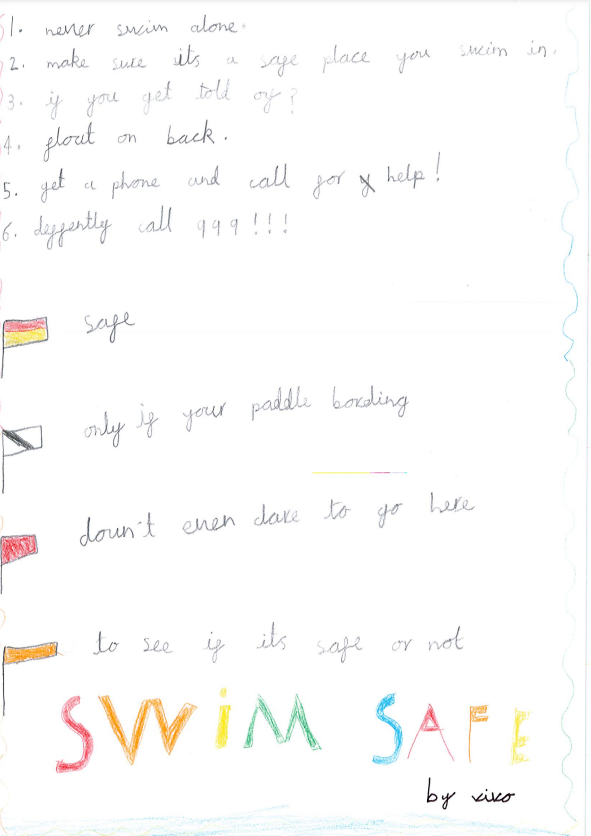 1. never swim alone.
2. make sure its a safe place you swim in.
3. if you get told of?
4. flout on back.
5. get a phone and call for help!
6. deffently call 999!!!
safe
only if your paddle bording
doun't even dare to go here
to see if its safe or not
SWiM SAFE
by